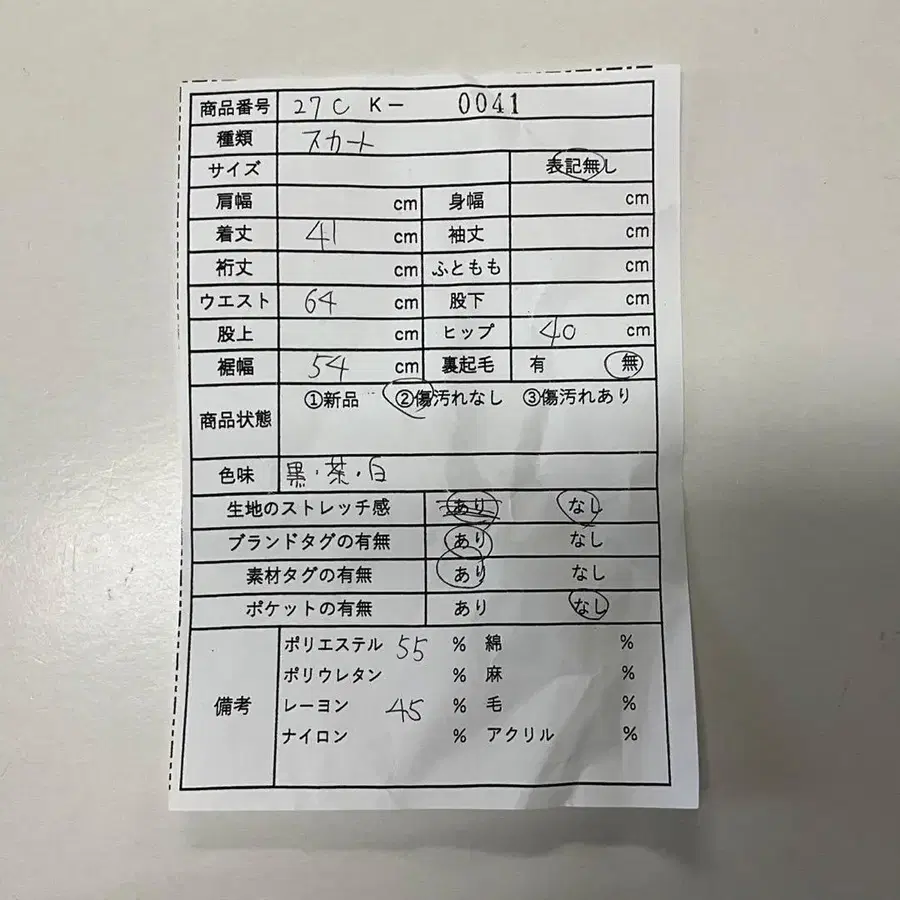 商品番号 27C K- 0041
種類 スカート
サイズ 表記無し
肩幅 cm 身幅 cm
着丈 41 cm 袖丈 cm
裄丈 cm ふともも cm
ウエスト 64 cm 股下 cm
股上 cm ヒップ 40 cm
裾幅 54 cm 裏起毛 有 無
商品状態 ①新品 ②傷汚れなし ③傷汚れあり
色味 黒・茶・白
生地のストレッチ感 あり なし
ブランドタグの有無 あり なし
素材タグの有無 あり なし
ポケットの有無 あり なし
備考
ポリエステル 55 % 綿 %
ポリウレタン % 麻 %
レーヨン 45 % 毛 %
ナイロン % アクリル %